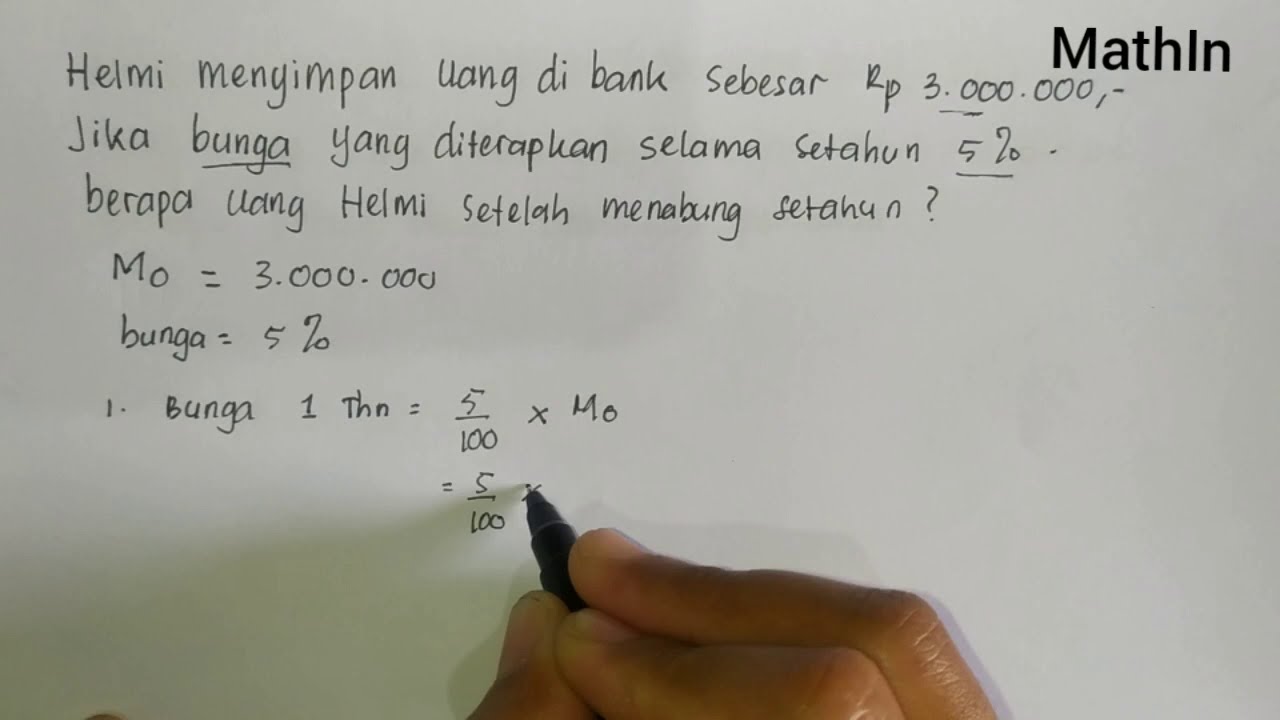 MathIn
Helmi menyimpan uang di bank sebesar Rp 3.000.000,-
Jika bunga yang diterapkan selama setahun 5% .
berapa uang Helmi setelah menabung setahun ?
Mo = 3.000.000
bunga = 5 %
1. Bunga 1 Thn = 5/100 x Mo
= 5/100 x